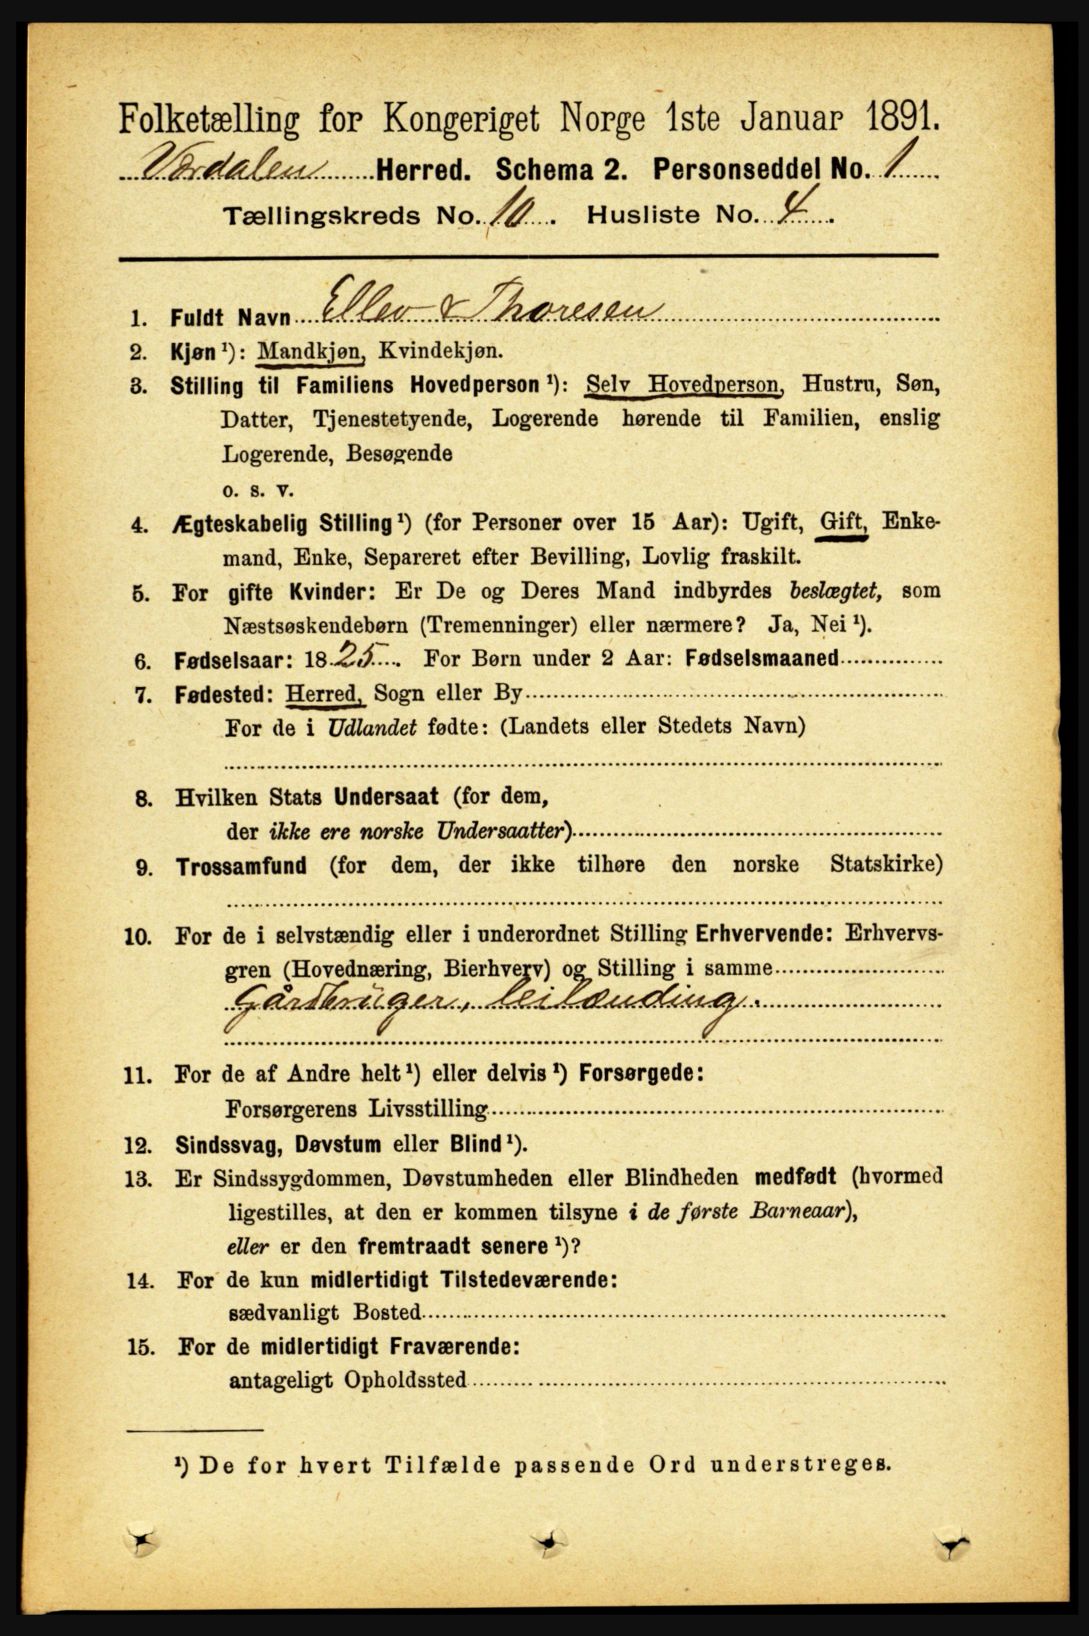 Folketælling for Kongeriget Norge 1ste Januar 1891.
Værdalen Herred. Schema 2. Personseddel No. 1
Tællingskreds No. 10. Husliste No. 4.
1. Fuldt Navn Ellev Thoresen
2. Kjøn ¹): Mandkjøn, Kvindekjøn.
3. Stilling til Familiens Hovedperson ¹): Selv Hovedperson, Hustru, Søn,
Datter, Tjenestetyende, Logerende hørende til Familien, enslig
Logerende, Besøgende
o. s. v.
4. Ægteskabelig Stilling ¹) (for Personer over 15 Aar): Ugift, Gift, Enke-
mand, Enke, Separeret efter Bevilling, Lovlig fraskilt.
5. For gifte Kvinder: Er De og Deres Mand indbyrdes beslægtet, som
Næstsøskendebørn (Tremenninger) eller nærmere? Ja, Nei ¹).
6. Fødselsaar: 1825. For Børn under 2 Aar: Fødselsmaaned
7. Fødested: Herred, Sogn eller By
For de i Udlandet fødte: (Landets eller Stedets Navn)
8. Hvilken Stats Undersaat (for dem,
der ikke ere norske Undersaatter)
9. Trossamfund (for dem, der ikke tilhøre den norske Statskirke)
10. For de i selvstændig eller i underordnet Stilling Erhvervende: Erhvervs-
gren (Hovednæring, Bierhverv) og Stilling i samme
Gårdbrüger, leilænding.
11. For de af Andre helt ¹) eller delvis ¹) Forsørgede:
Forsørgerens Livsstilling
12. Sindssvag, Døvstum eller Blind ¹).
13. Er Sindssygdommen, Døvstumheden eller Blindheden medfødt (hvormed
ligestilles, at den er kommen tilsyne i de første Barneaar),
eller er den fremtraadt senere ¹)?
14. For de kun midlertidigt Tilstedeværende:
sædvanligt Bosted
15. For de midlertidigt Fraværende:
antageligt Opholdssted
¹) De for hvert Tilfælde passende Ord understreges.